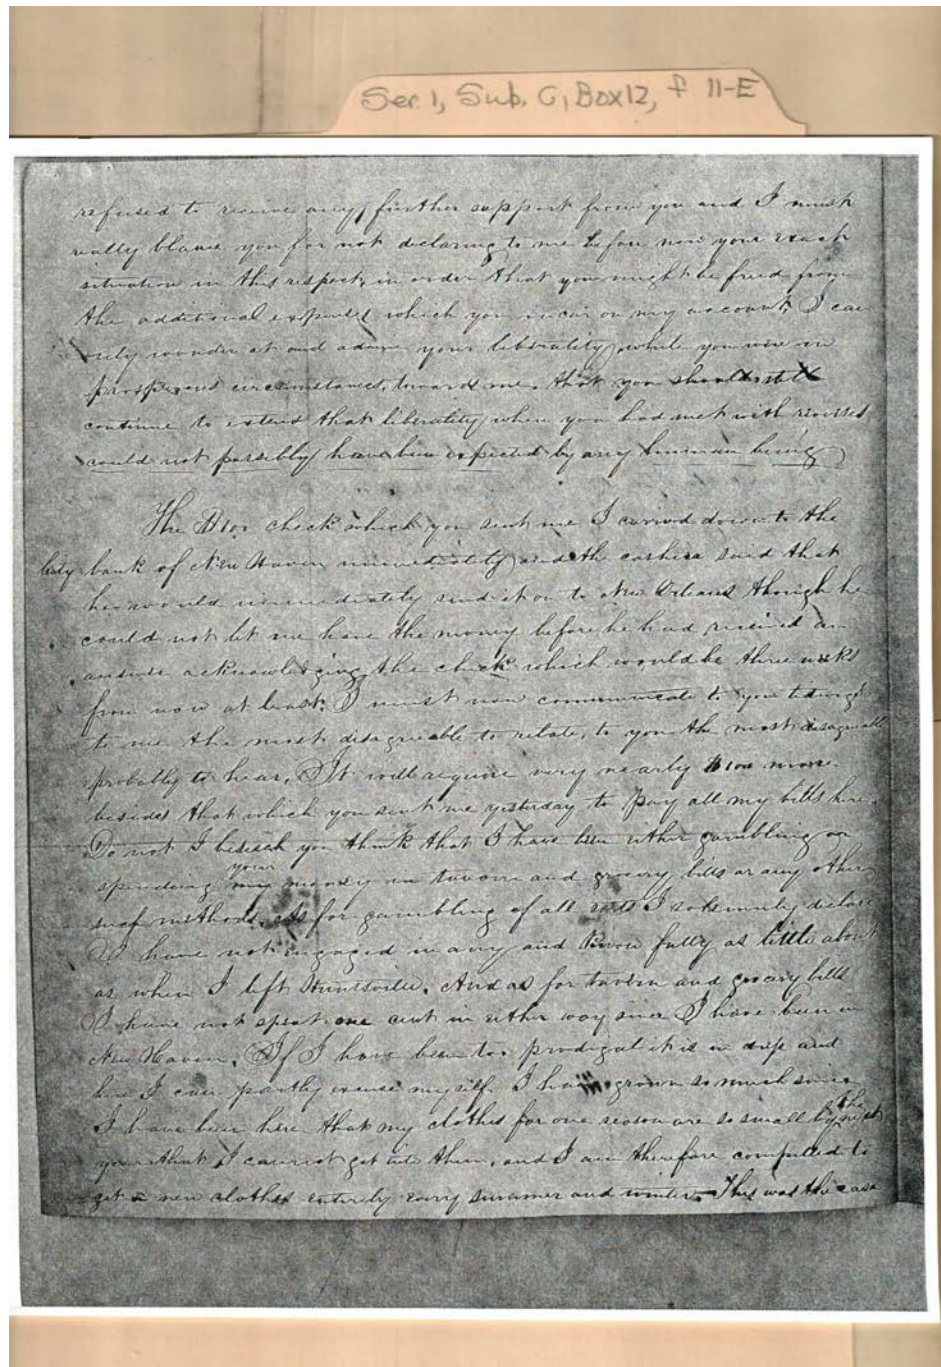 Ser. 1, Sub. G, Box 12, f 11-E
refused to receive any further support from you and I must
really blame you for not declaring to me before now your exact
situation in this respect, in order that you might be freed from
the additional expenses which you incur on my account, I can
only wonder at and admire your liberality, while you were in
prosperous circumstances, towards me. that you should still
continue to extend that liberality when you had met with reverses
could not possibly have been expected by any human being
The $100 check which you sent me I carried down to the
City bank of New Haven immediately and the cashier said that
he would immediately send it on to New Orleans though he
could not let me have the money before he had received an
answer acknowledging the check which would be three weeks
from now at least. I must now communicate to you tidings
to me the most disagreeable to relate, to you the most disagreeable
probably to hear. It will require very nearly $100 more
besides that which you sent me yesterday to pay all my bills here.
Do not I beseech you think that I have been either gambling or
spending my your money in tavern and grocery bills or any other
such methods. As for gambling of all sorts I solemnly declare
I have not engaged in any and know fully as little about
as when I left Huntsville. And as for tavern and grocery bills
I have not spent one cent in either way since I have been in
New Haven. If I have been too prodigal it is in dress and
here I can partly excuse myself. I have grown so much since
I have been here that my clothes for one season are so small by the next
year that I cannot get into them, and I am therefore compelled to
get new clothes entirely every summer and winter. This was the case